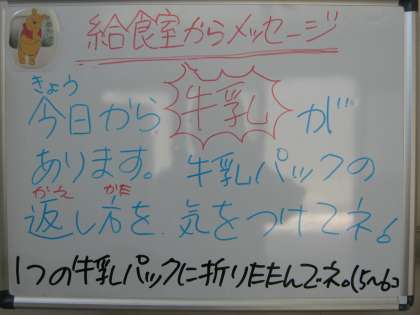 給食室からメッセージ
きょう
今日から牛乳が
あります。牛乳パックの
かえ かた
返し方を、気をつけてネ。
1つの牛乳パックに折りたたんでネ。(5~6コ